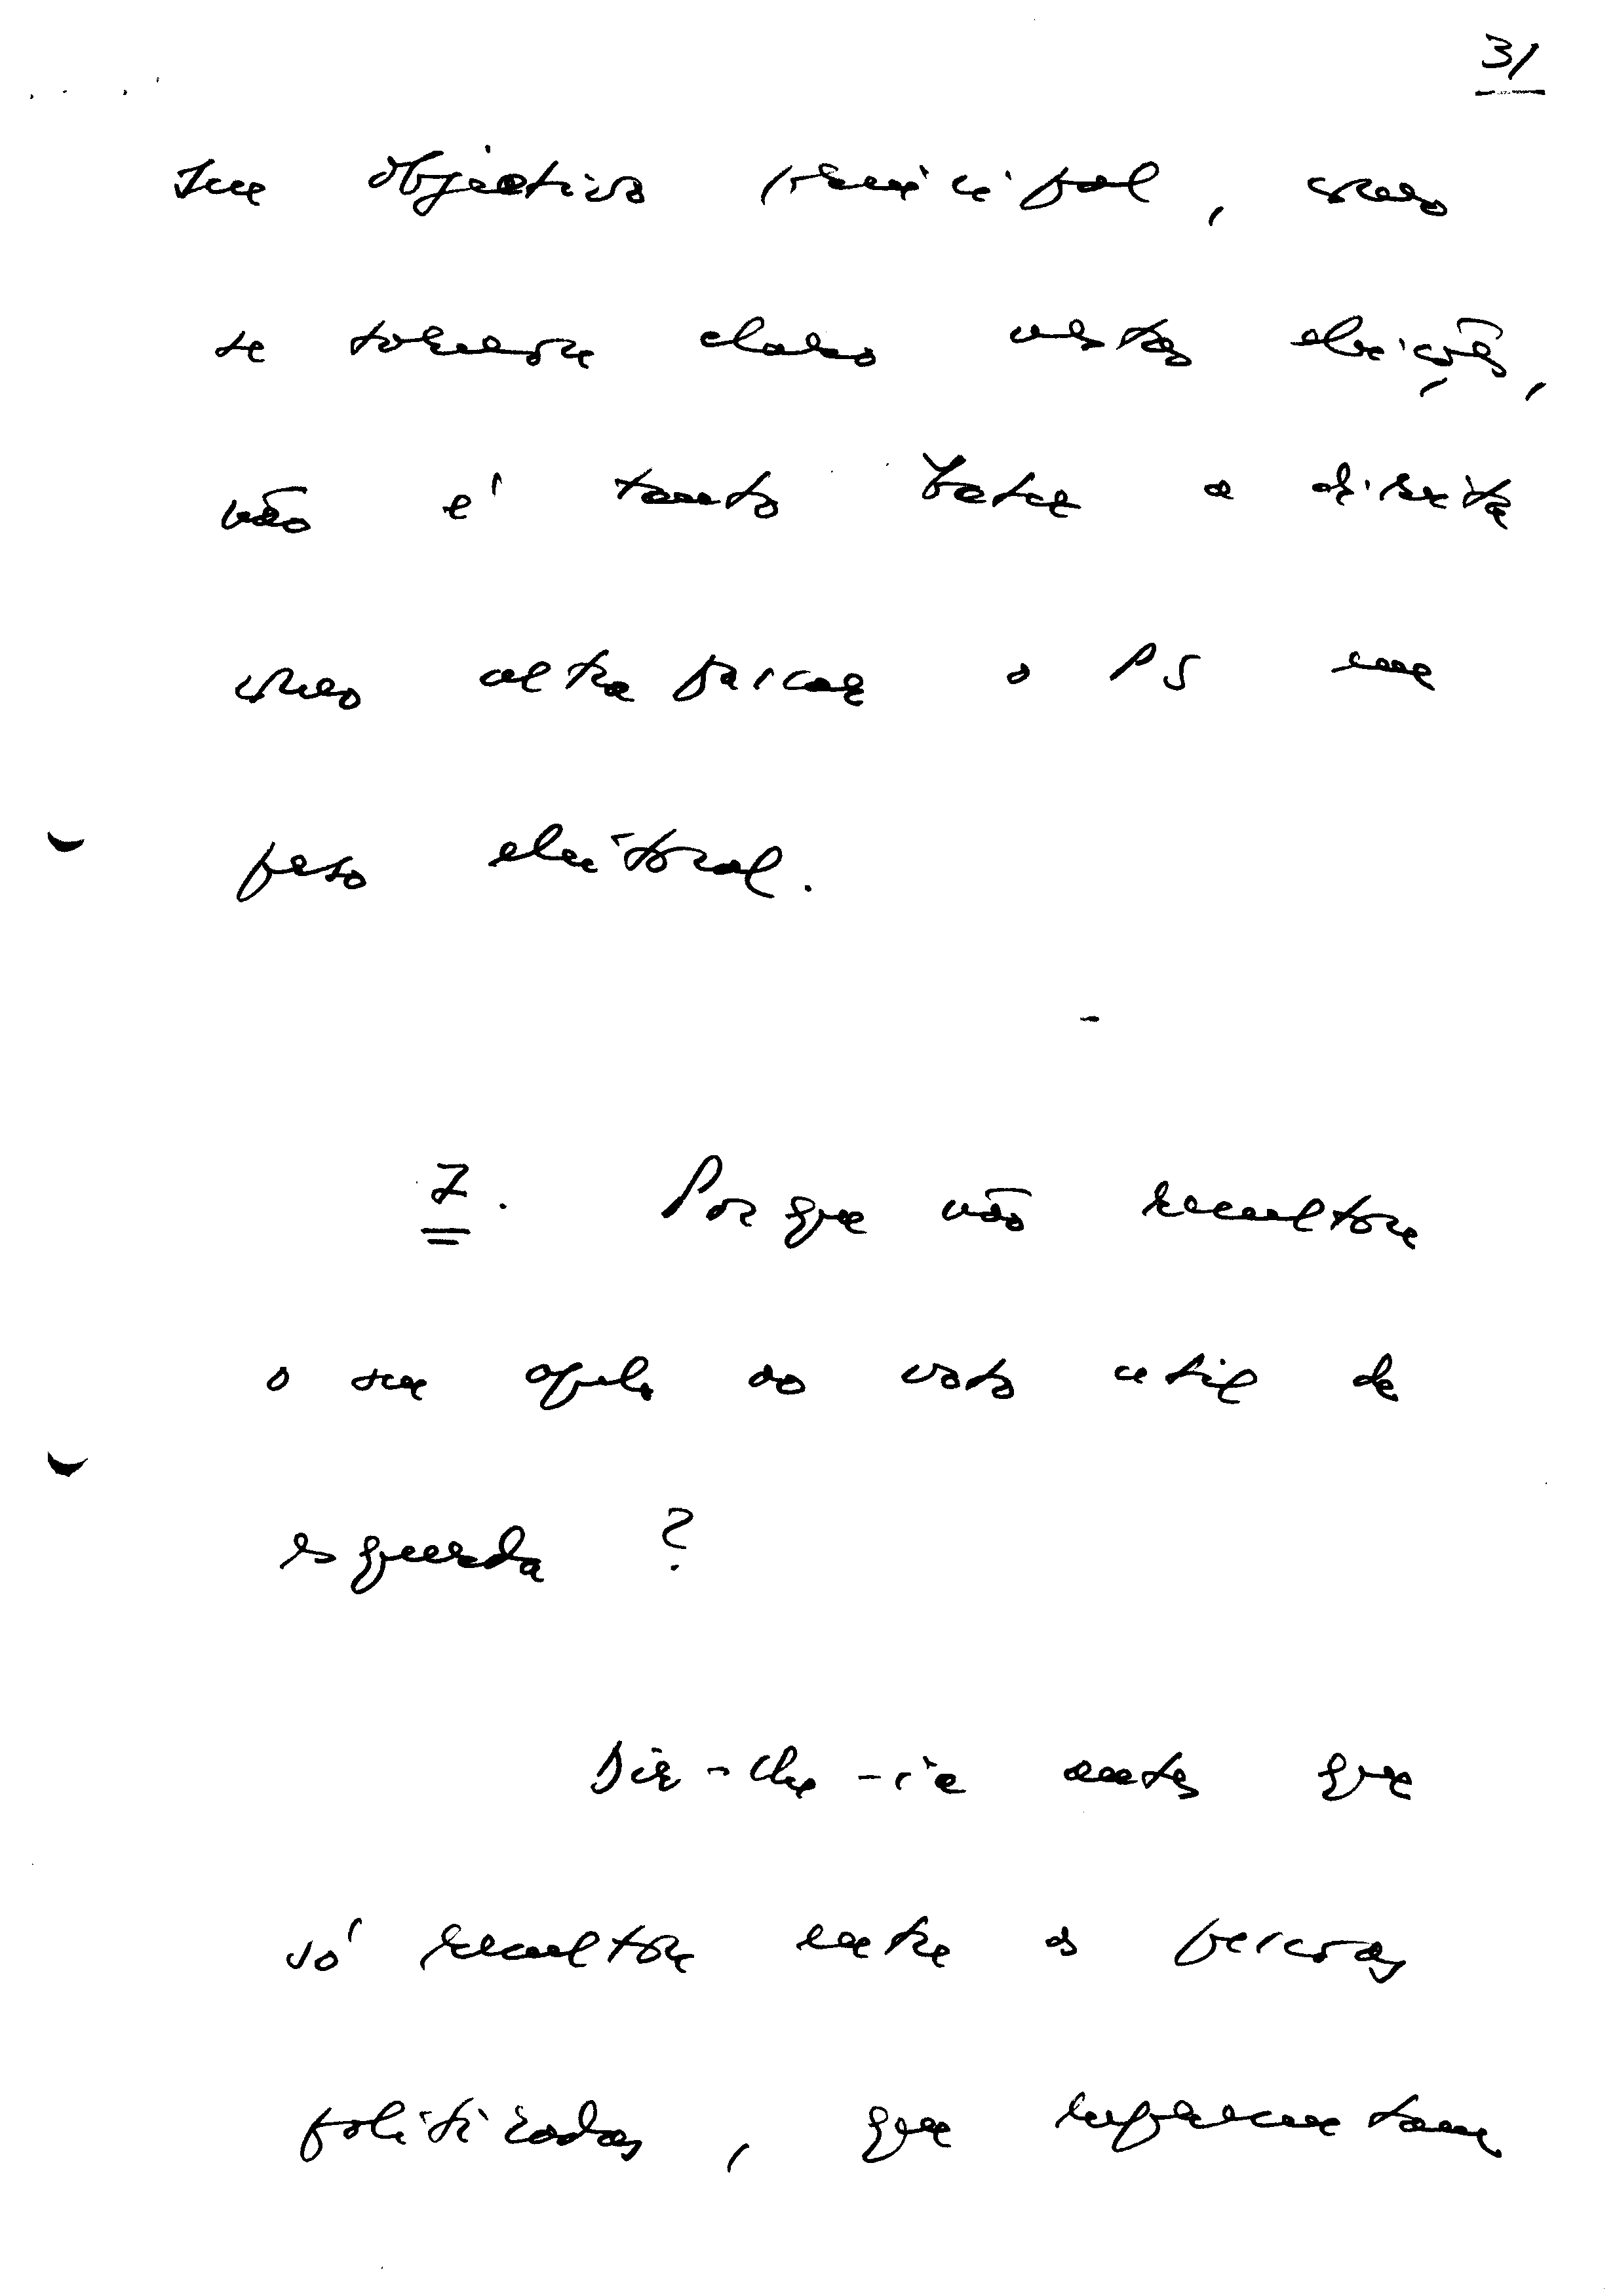 31
seu objectivo principal, como
se tornou claro nestas eleições,
não é tanto bater a direita
como ultrapassar o PS em
peso eleitoral.
7. Porque não resultou
o seu apelo ao voto útil de
esquerda?
Dir-lhe-ia antes que
só resultou entre as pessoas
politizadas, que representam